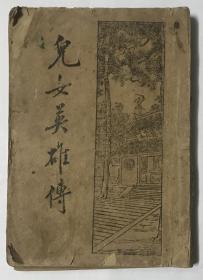 兒女英雄傳